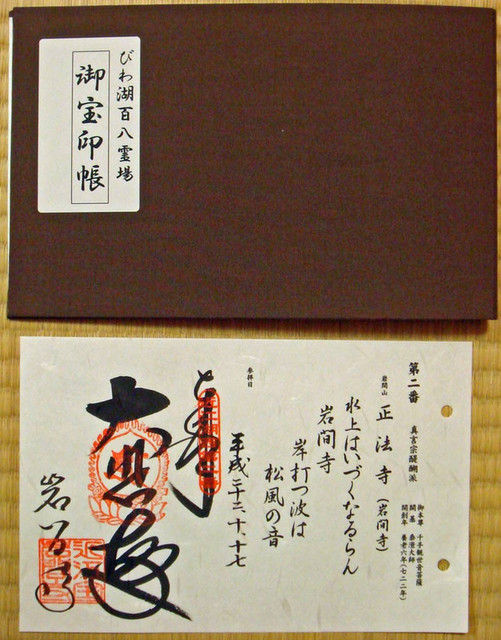 びわ湖百八霊場
御宝印帳
第二番 真言宗醍醐派
御本尊 千手観世音菩薩
開基 泰澄大師
開創年 養老六年(七二二年)
岩間山 正法寺(岩間寺)
水上はいづくなるらん
岩間寺
岸打つ波は
松風の音
参拝日
平成二十二、十、十七
大悲殿
岩間寺